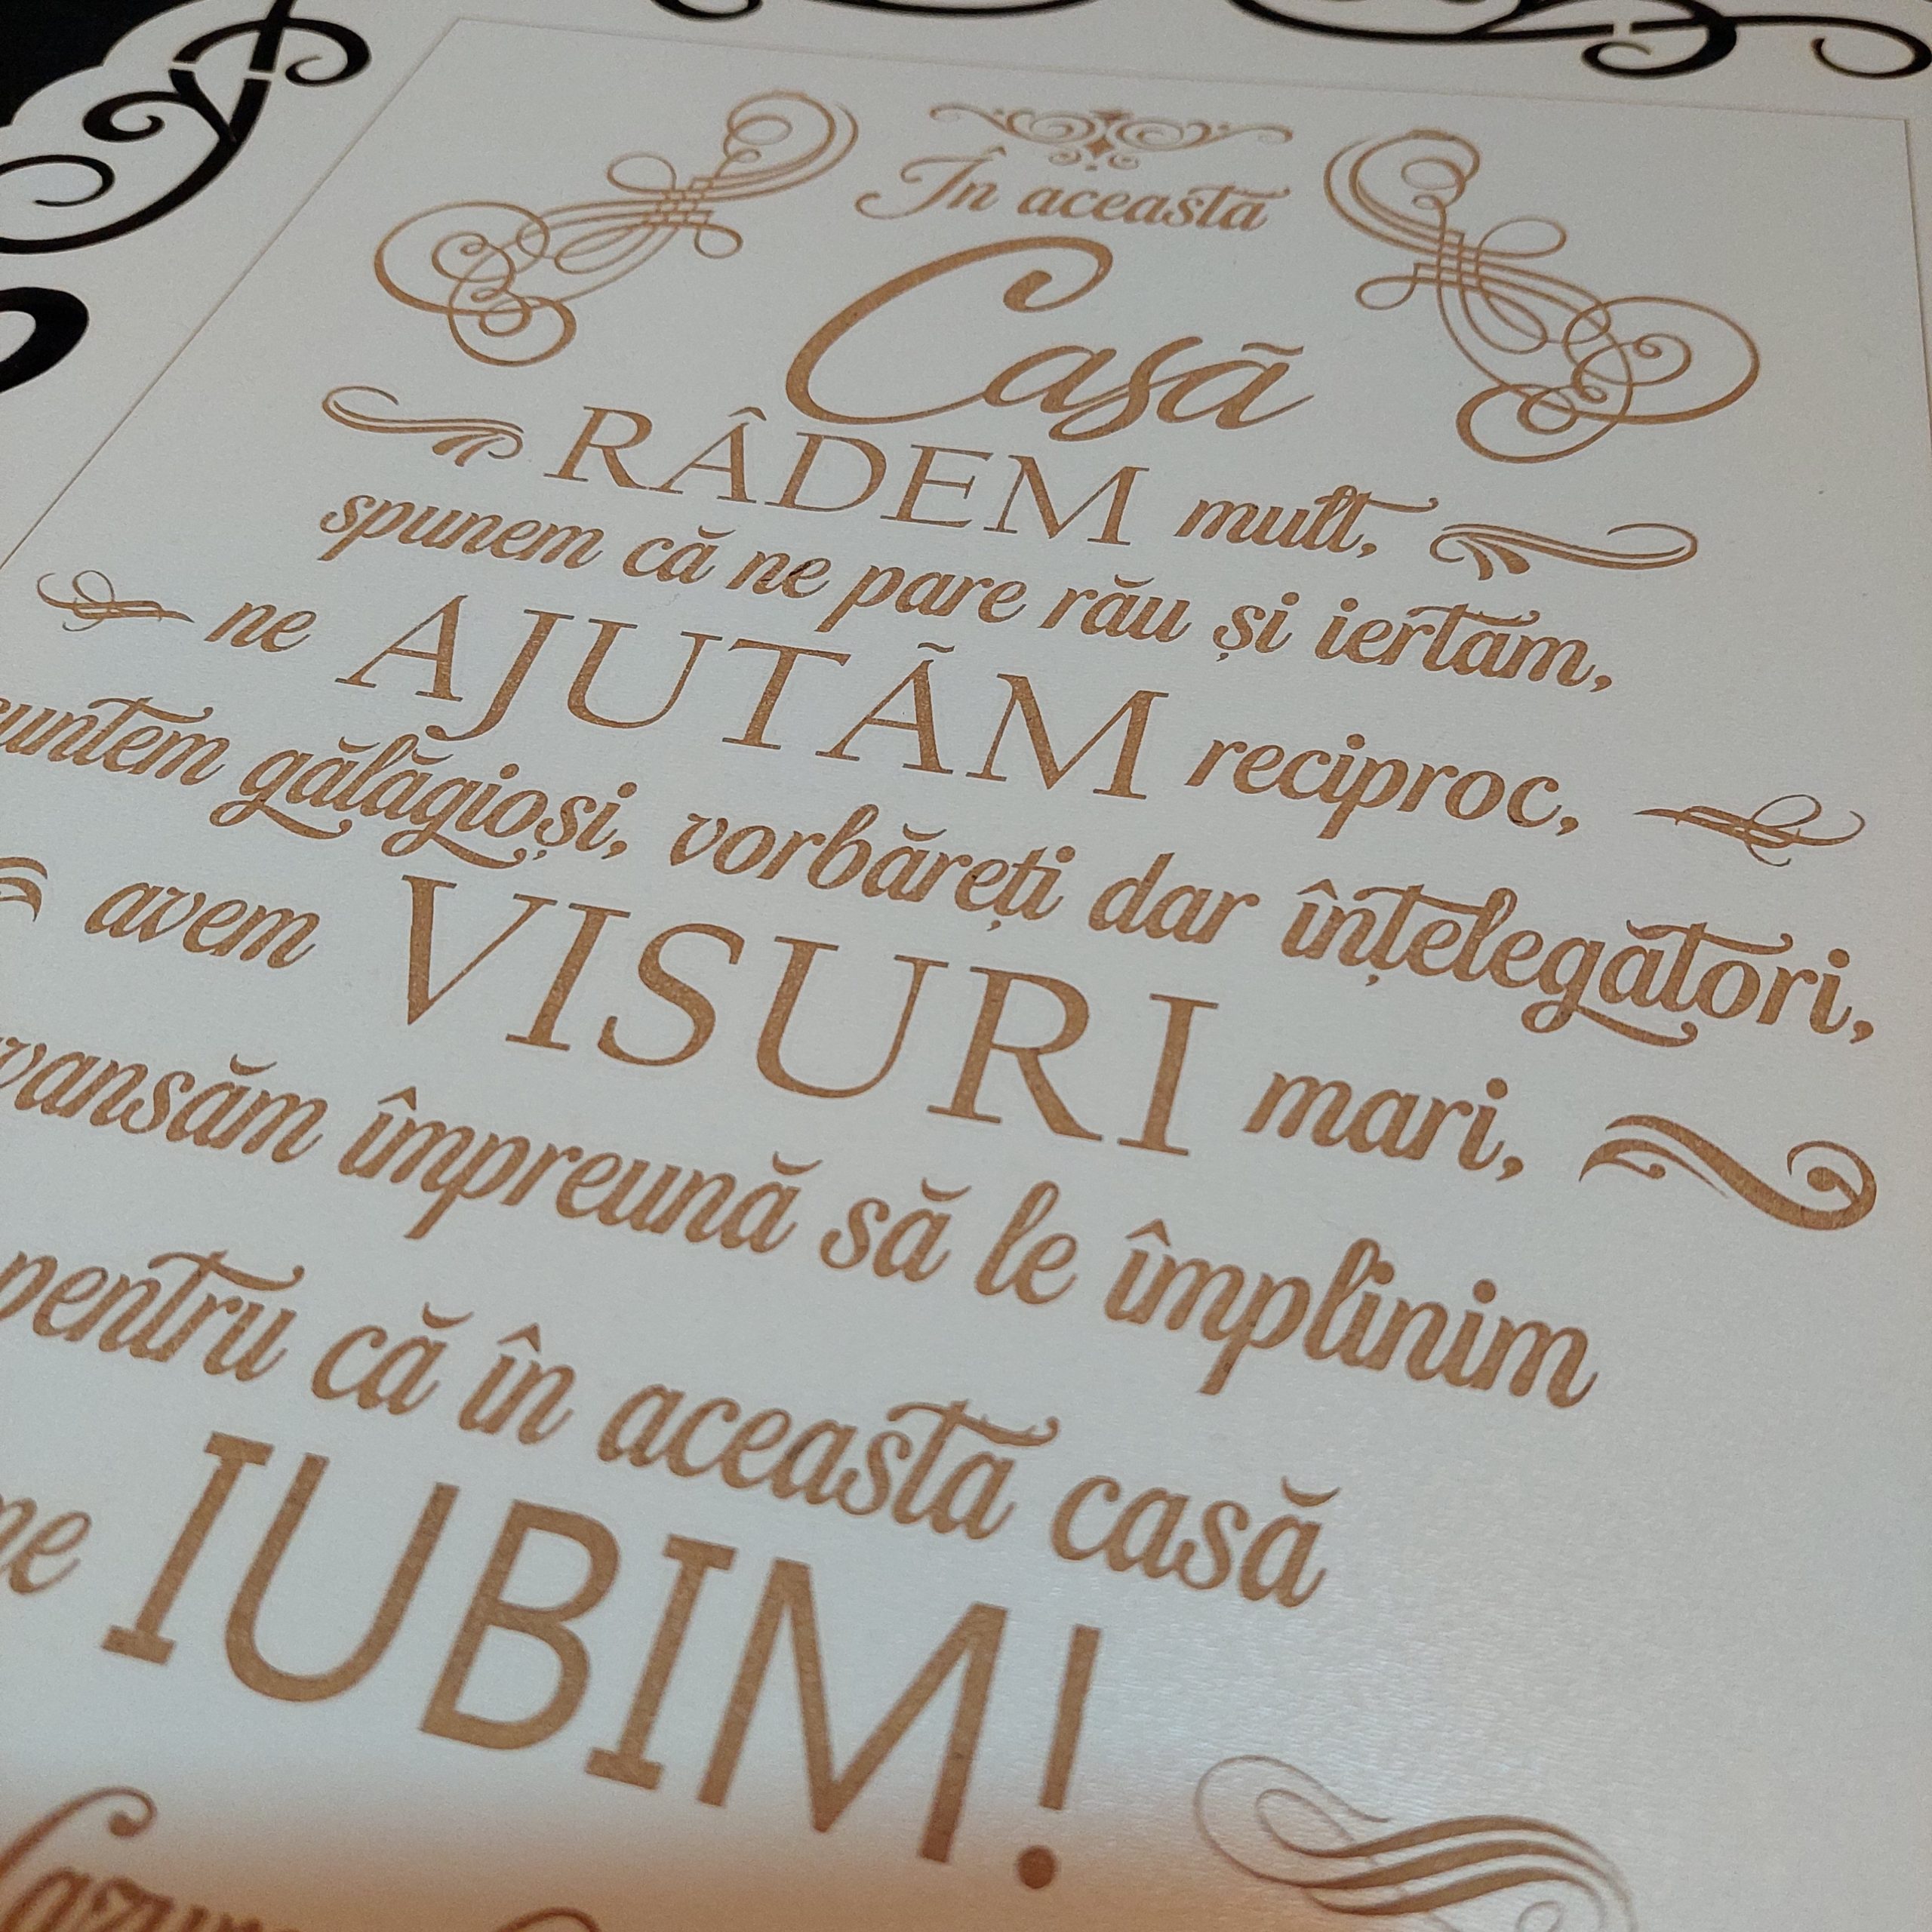 În aceastã
Casã
RÂDEM mult,
spunem că ne pare rău și iertăm,
ne AJUTÃM reciproc,
suntem gălăgioși, vorbăreți dar înțelegători,
avem VISURI mari,
vansăm împreună să le împlinim
pentru că în această casă
ne IUBIM!